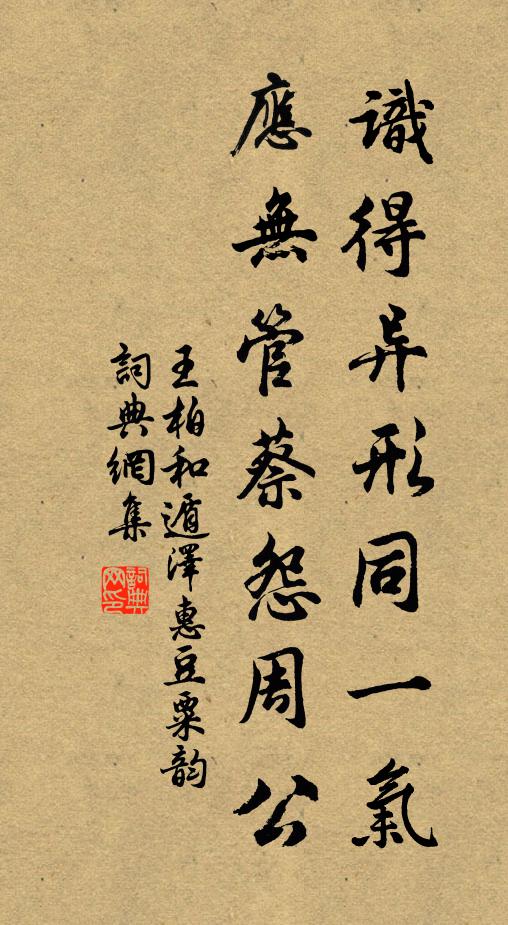 識得异形同一氣
應無管蔡怨周公
王柏和遁澤惠豆粟韵
詞典網集
詞典
网印